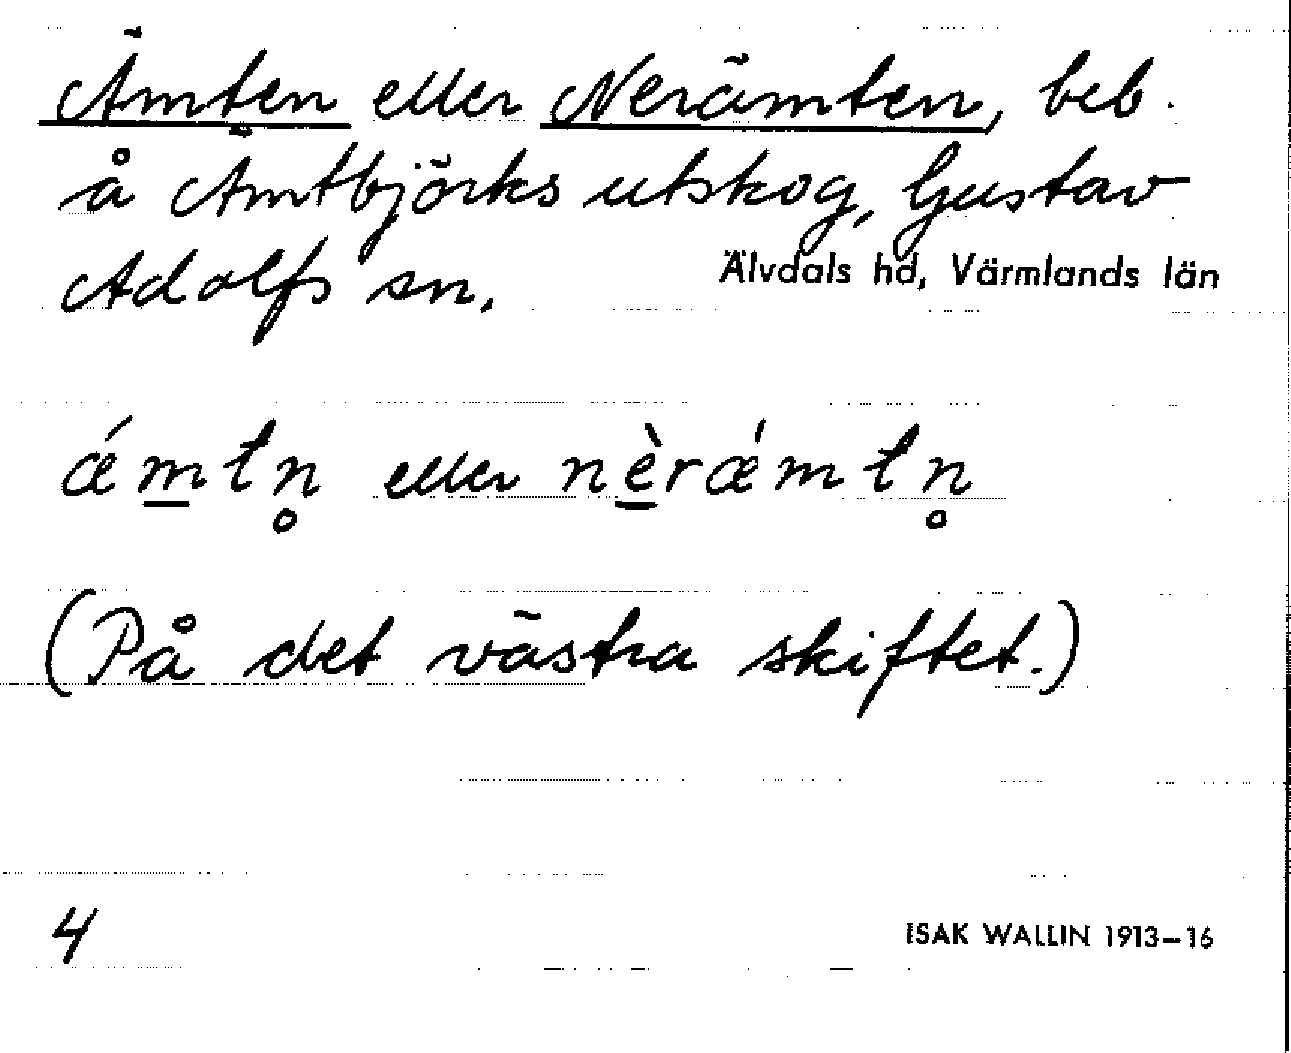 Ämten eller Nerämten, beb.
å Ämtbjörks utskog, Gustav
Adolfs sn.
Älvdals hd, Värmlands län
ǽm̲tn̥ eller nè̲rǽmtn̥
(På det västra skiftet.)
4
ISAK WALLIN 1913–16